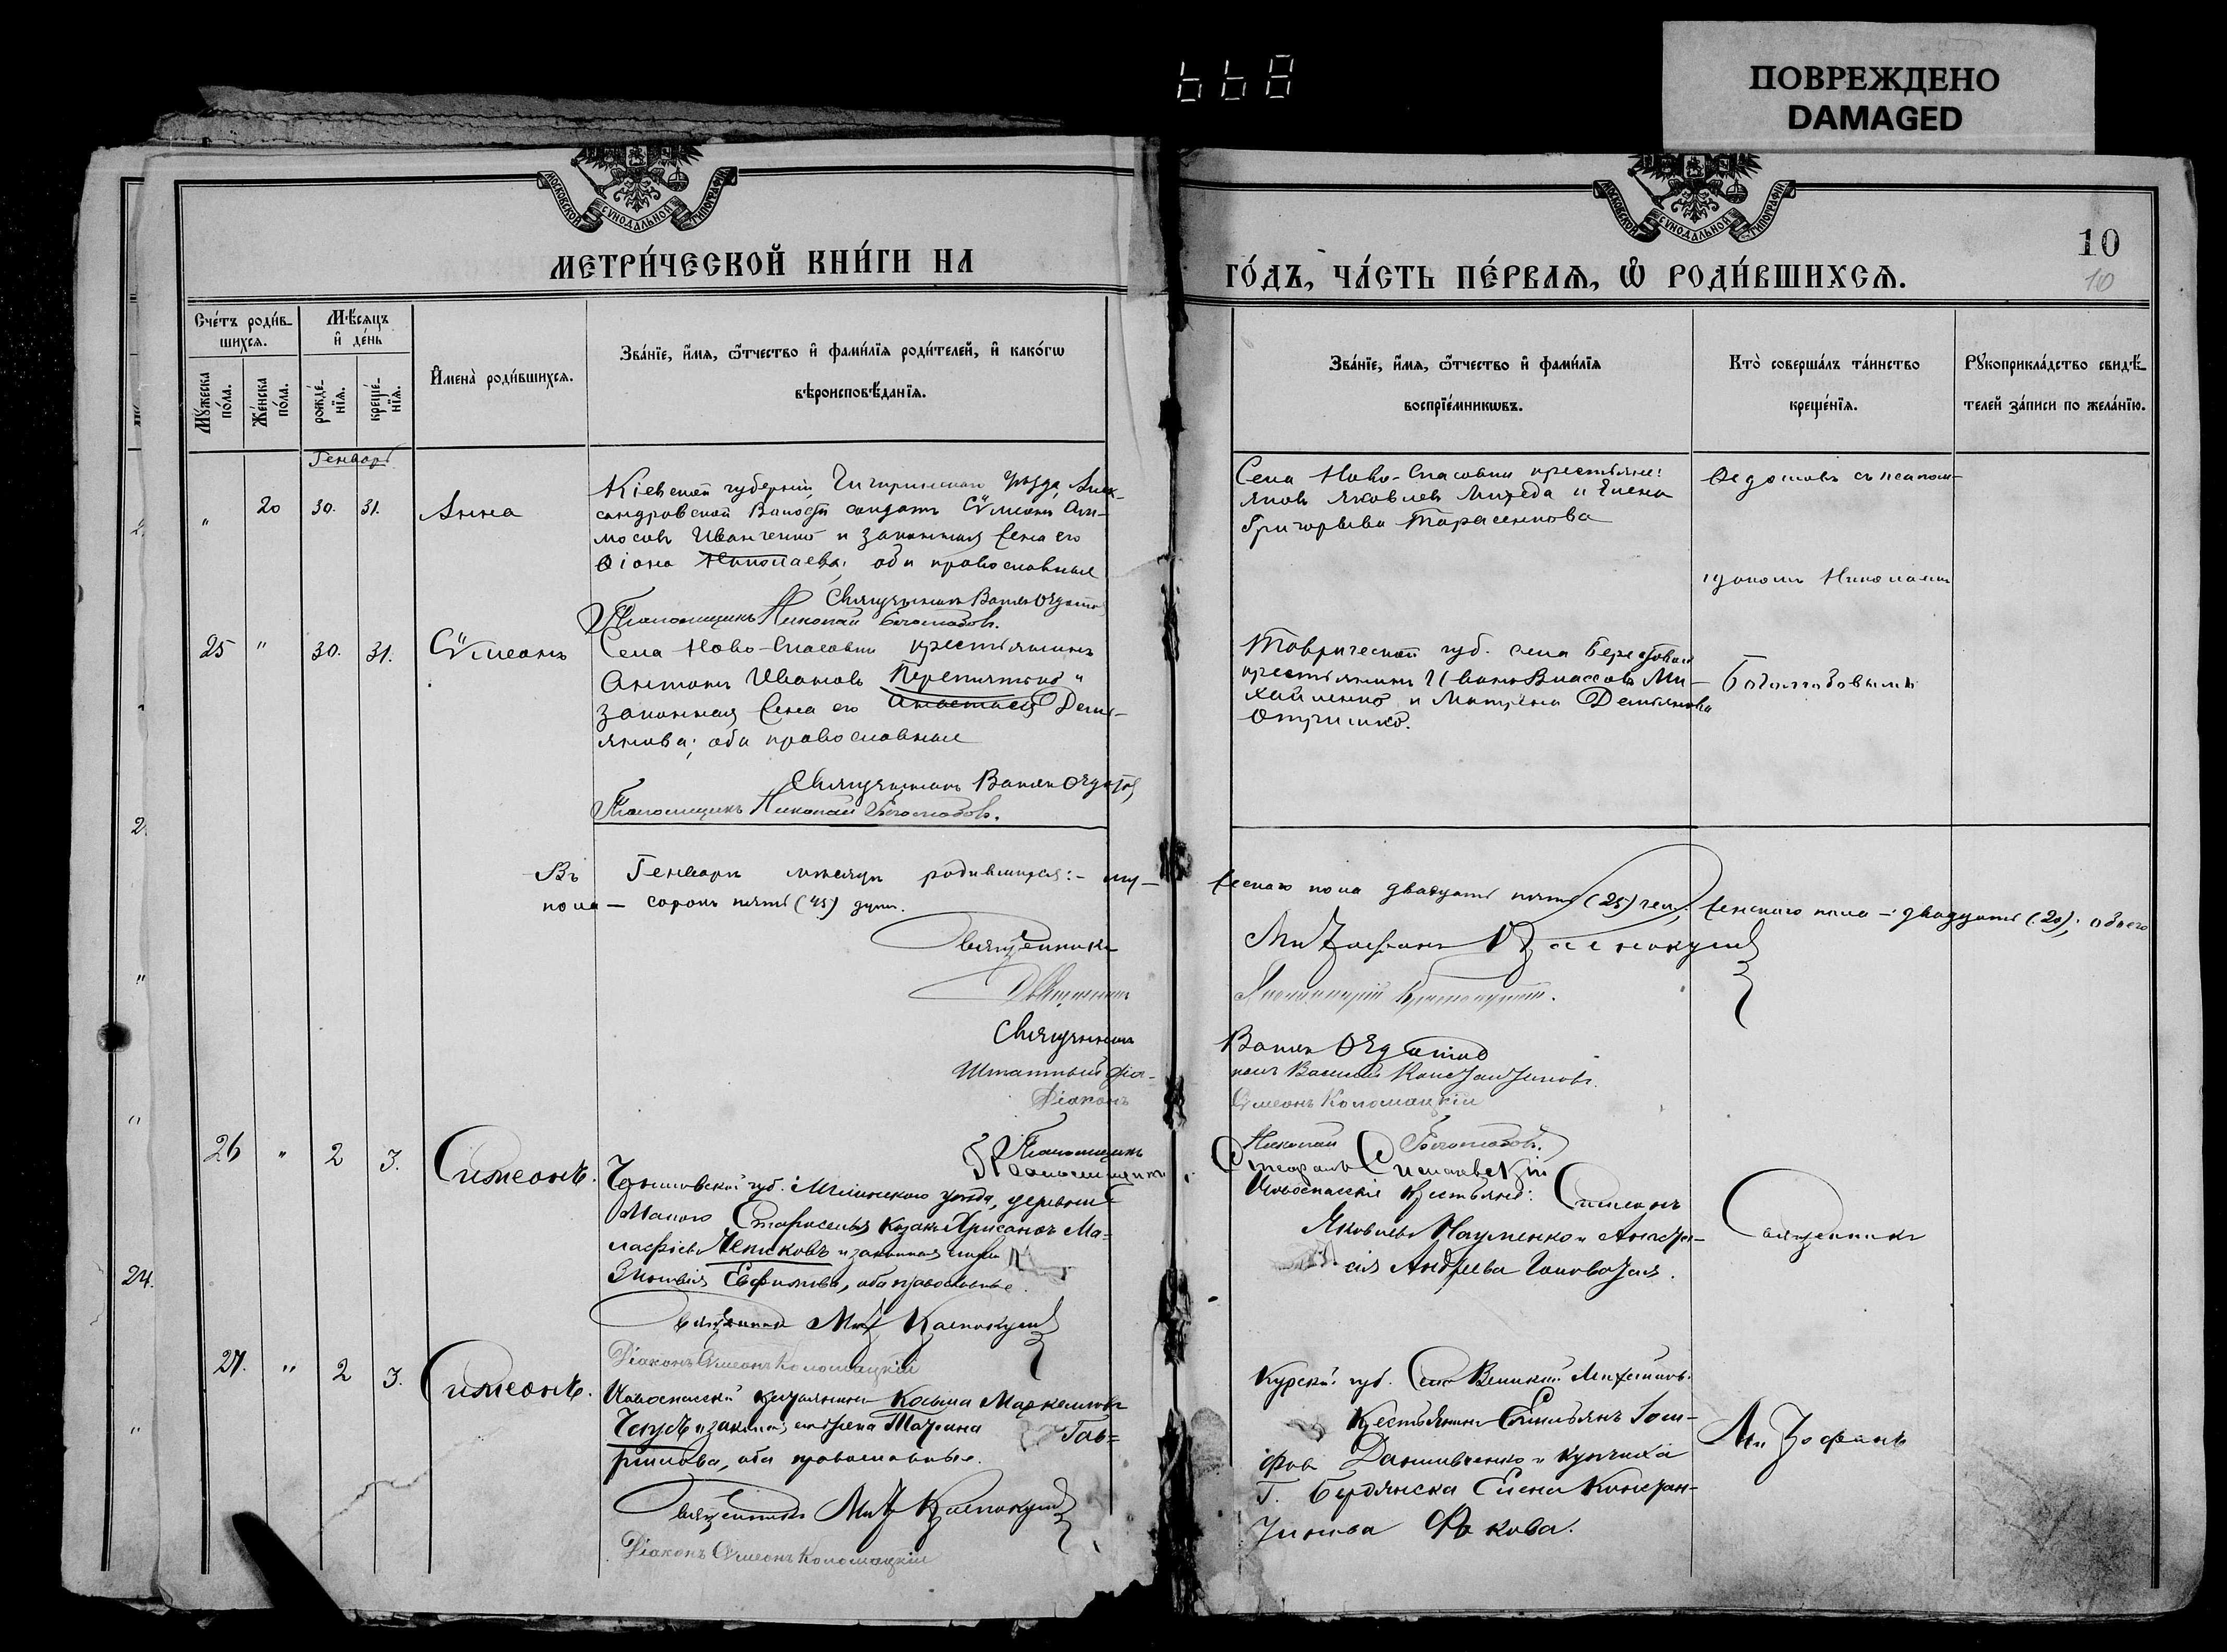 668
ПОВРЕЖДЕНО
DAMAGED
МОСКОВСКОЙ СѴНОДАЛЬНОЙ ТИПОГРАФІИ
МОСКОВСКОЙ СѴНОДАЛЬНОЙ ТИПОГРАФІИ
МЕТРИ́ЧЕСКОЙ КНИ́ГИ НА
ГО́ДЪ, ЧА́СТЬ ПЕ́РВАѦ, Ѡ҆ РОДИ́ВШИХСѦ.
10
10
Сче́тъ роди́в-
шихсѧ.
Мѣ́сѧцъ
и҆ де́нь
Мꙋ́жеска
по́ла.
Же́нска
по́ла.
рожде́-
нїѧ.
креще́-
нїѧ.
И҆мена̀ роди́вшихсѧ.
Зва́нїе, и҆́мѧ, ѻ҆́тчество и҆ фами́лїѧ роди́телей, и҆ како́гѡ
вѣроисповѣ́данїѧ.
Зва́нїе, и҆́мѧ, ѻ҆́тчество и҆ фами́лїѧ
воспрїе́мникѡвъ.
Кто̀ соверша́лъ та́инство
креще́нїѧ.
Рꙋкоприкла́дство свидѣ́-
телей за́писи по жела́нїю.
Генварь
" 20 30. 31. Анна
Кіевской губерніи, Чигиринскаго Уѣзда, Алек-
сандровской Волости солдатъ Сѵмеонъ Ам-
мосовъ Иванченко и законная жена его
Ѳіона Николаева; оба православные
Священникъ Ѳедотовъ
Псаломщикъ Николай Боголюбовъ.
Села Ново-Спасовки крестьяне:
Яковъ Яковлевъ и Елена
Григорьева Тарасенкова
Ѳедотовъ съ псалом-
щикомъ Николаемъ
Боголюбовымъ
25 " 30. 31. Сѵмеонъ
Села Ново-Спасовки крестьянинъ
Антонъ Ивановъ Перепятько и
законная жена его Анастасія Демь-
янова; оба православные
Священникъ Ѳедотовъ
Псаломщикъ Николай Боголюбовъ.
Таврической губ. села Берестоваго
крестьянинъ Иванъ Власовъ Ми-
хайленко и Матрена Демьянова
Въ Генварѣ мѣсяцѣ родившихся: – му-
жескаго пола двадцать пять (25) чел., женскаго пола – двадцать (20); обоего
пола – сорокъ пять (45) душъ.
Священникъ Митрофанъ Краснокутскій
Священникъ
Священникъ Ѳедотовъ
Штатный діа-
конъ Василій Константиновъ.
Діаконъ Сѵмеонъ Коломацкій
Псаломщикъ Николай Боголюбовъ.
Псаломщикъ Стефанъ
26 " 2 3. Симеонъ.
Черниговской губ. Мглинскаго уѣзда, деревни
Малаго Староселья козакъ Хрисанѳъ Ма-
и законная жена
Зиновія Евфимова, оба православные.
Священникъ Мит Краснокутскій
Діаконъ Сѵмеонъ Коломацкій
Новоспасскіе крестьяне: Симеонъ
Яковлевъ Науменко и Анаста-
сія Андреева
Священникъ
27. " 2 3. Симеонъ.
Новоспасскій крестьянинъ Косьма Маркелловъ
и законная его жена Татіана Гав-
рилова, оба православные.
Священникъ Мит Краснокутскій
Діаконъ Сѵмеонъ Коломацкій
Курской губ. Села Великой Михайловки
крестьянинъ Емильянъ Іоси-
фовъ Данильченко и купчиха
г. Бердянска Елена Констан-
тинова
Митрофанъ